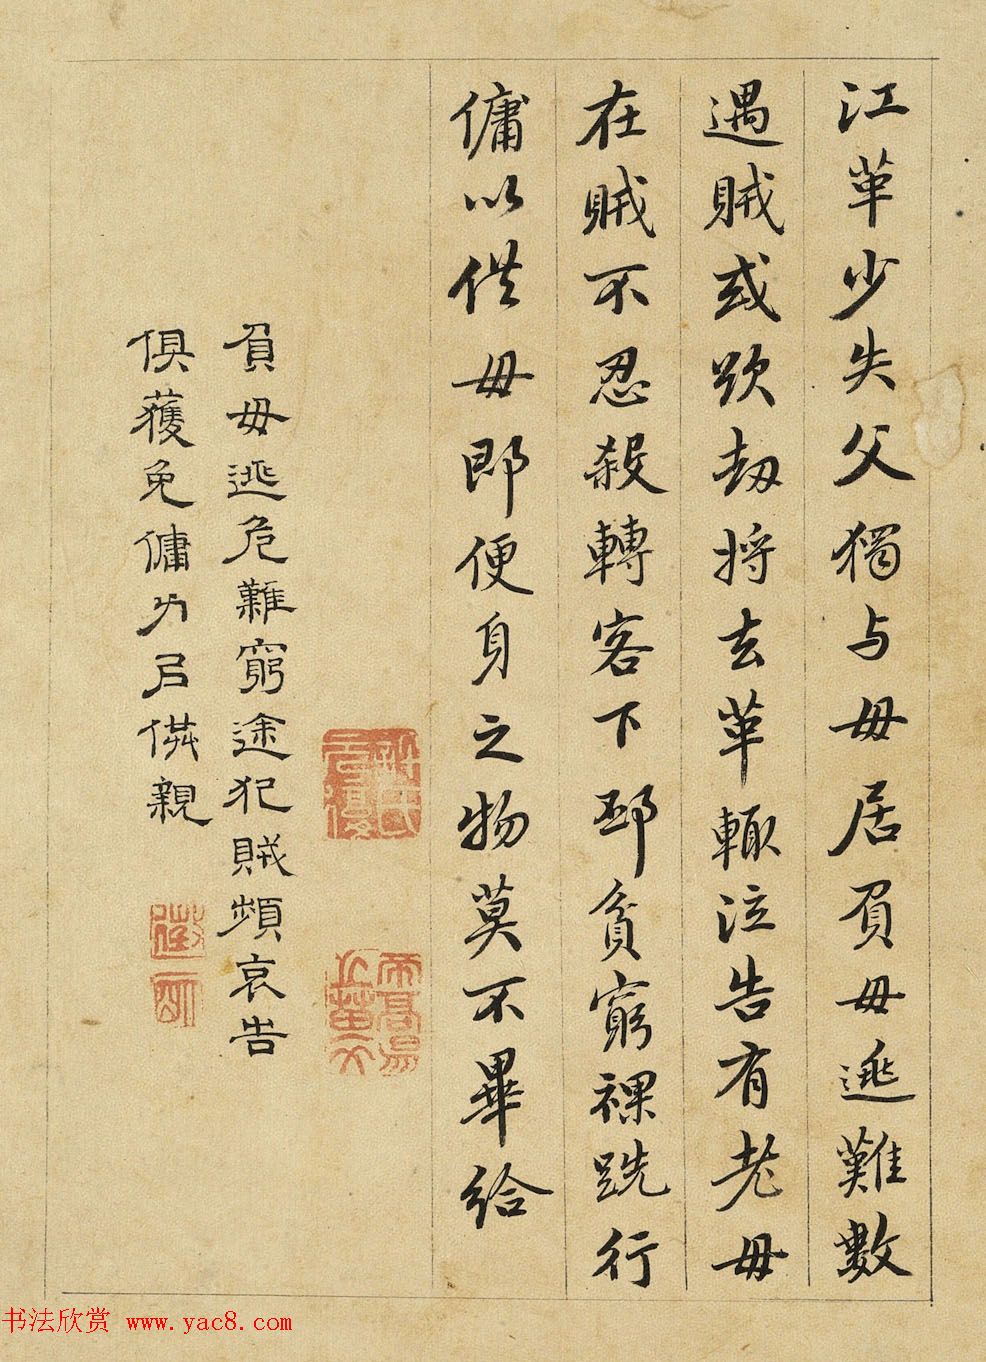 江革少失父獨与母居負母逃難數
遇賊或欲劫將去革輙泣告有老母
在賊不忍殺轉客下邳貧窮裸跣行
傭以供母即便身之物莫不畢給
負母逃危難窮途犯賊頻哀告
俱獲免傭力㠯供親
书法欣赏 www.yac8.com